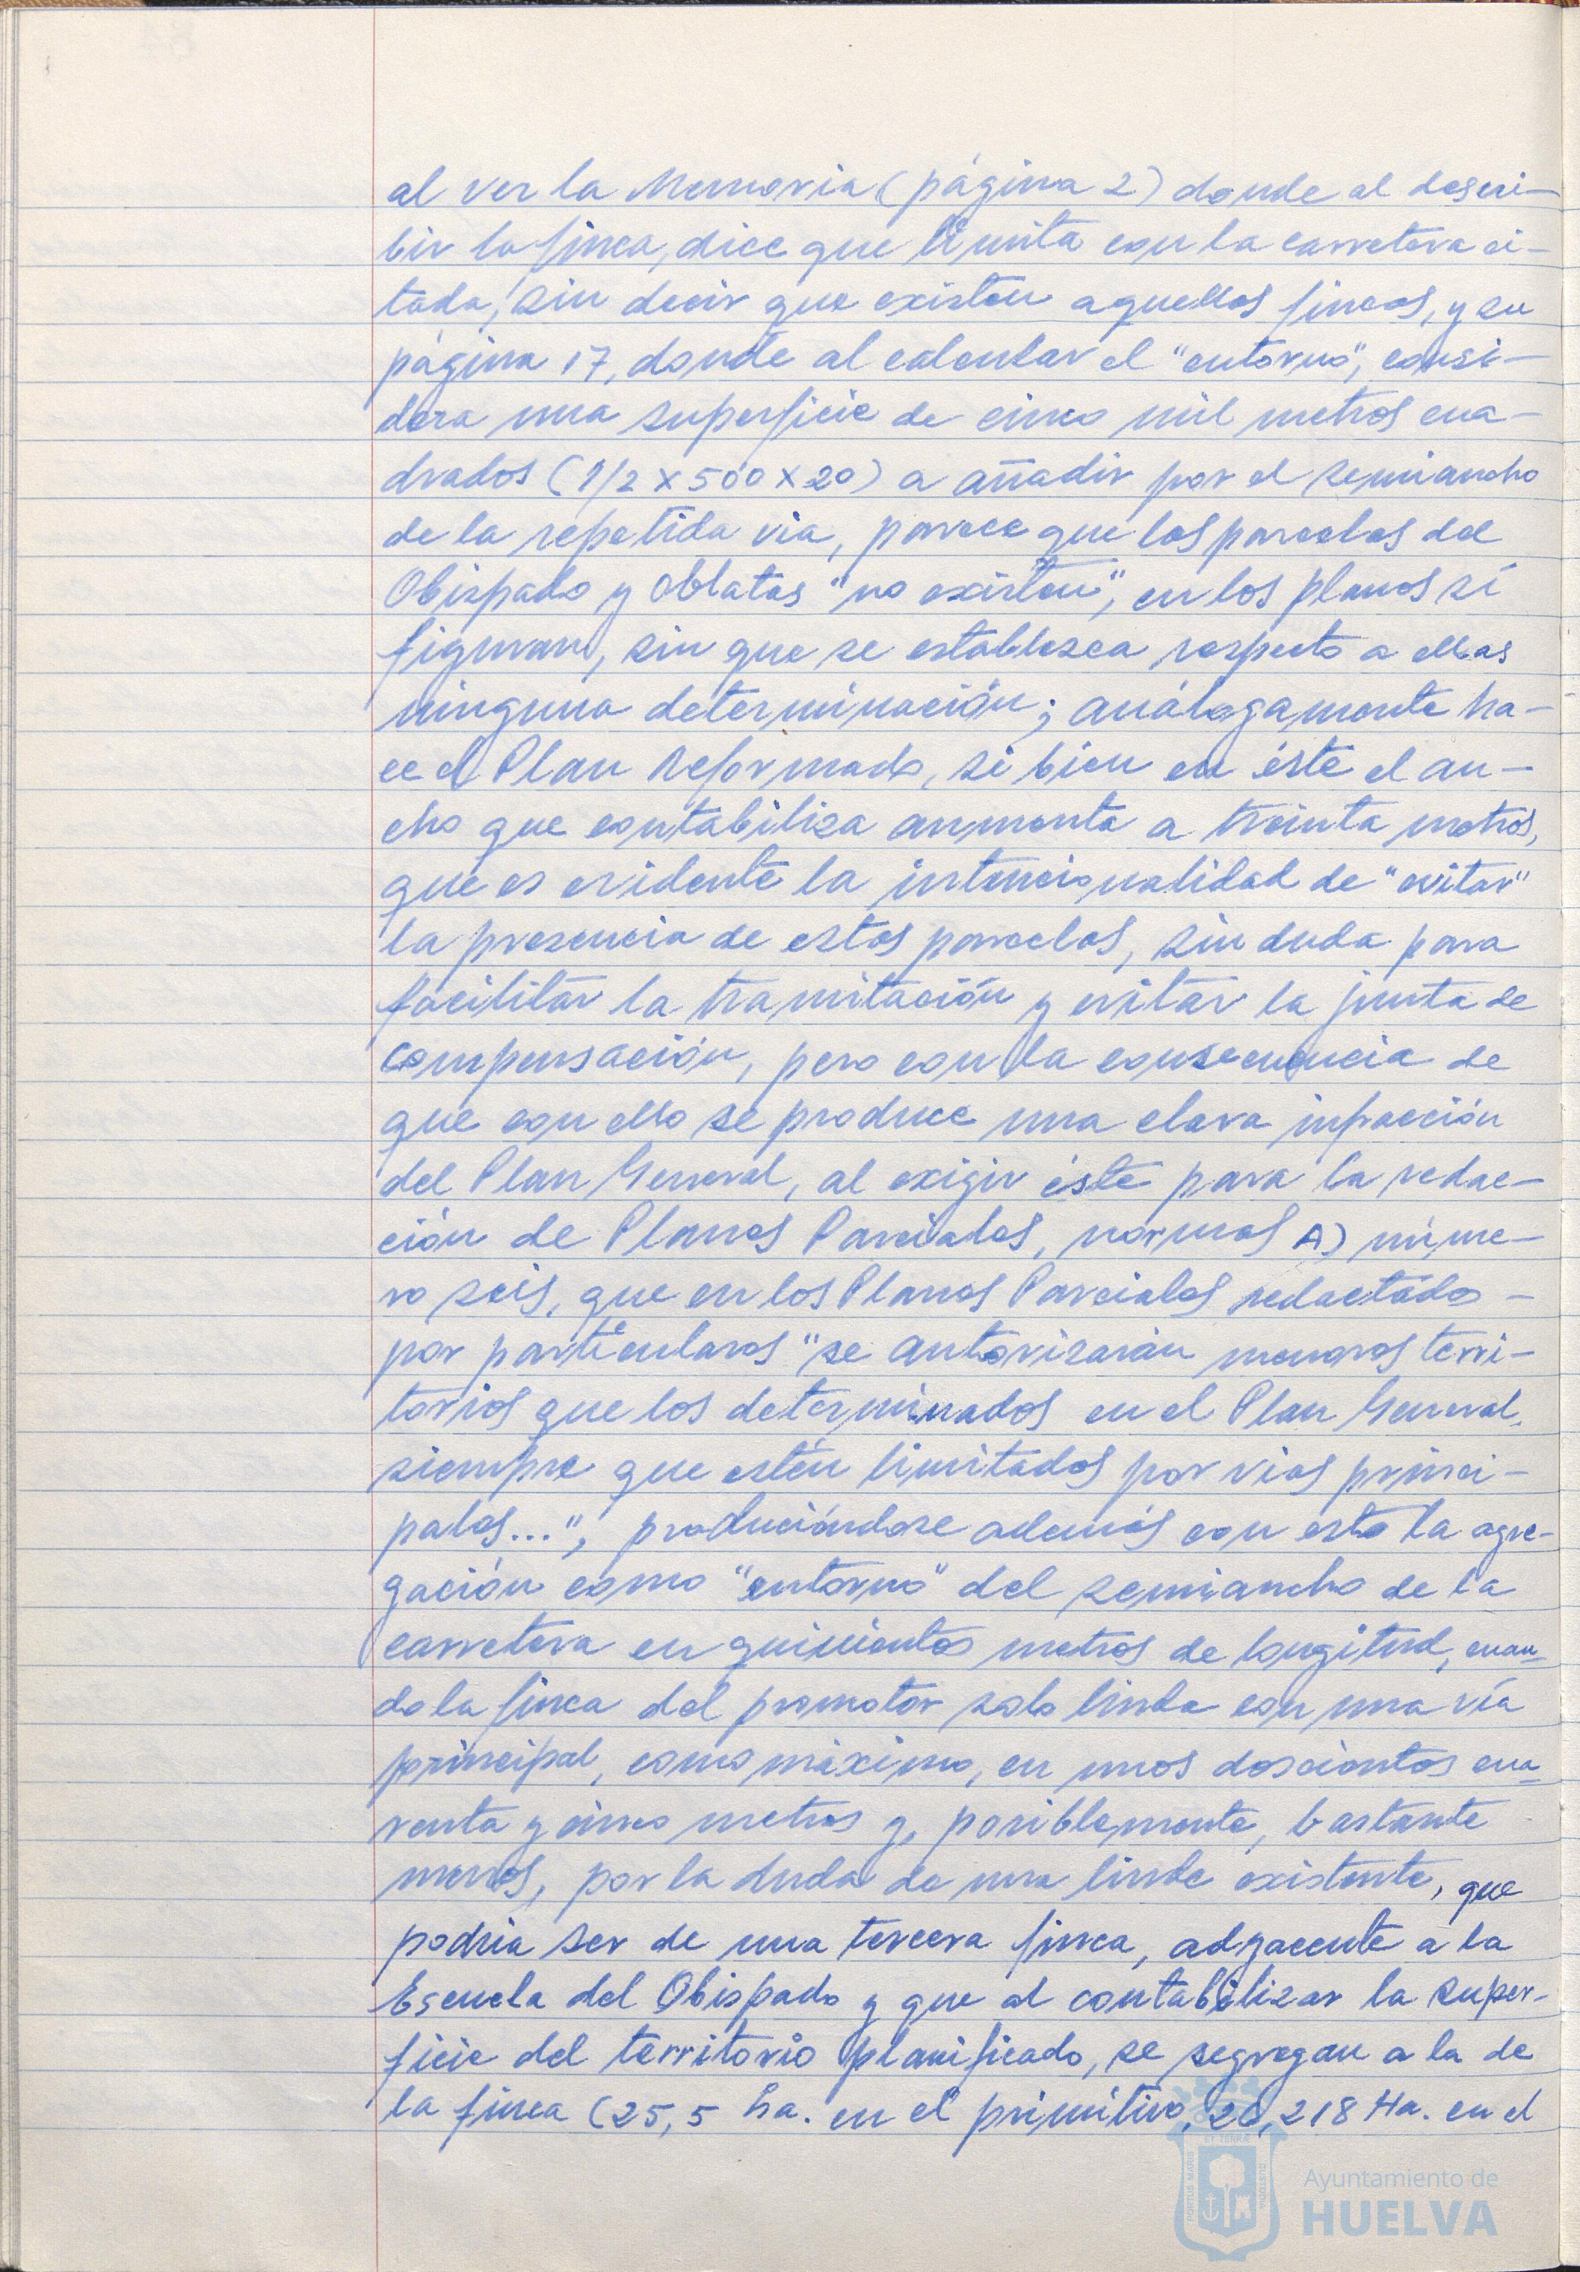 al ver la Memoria (página 2) donde al descri-
bir la finca, dice que limita con la carretera ci-
tada, sin decir que existen aquellas fincas, y su
página 17, donde al calcular el "entorno", consi-
dera una superficie de cinco mil metros cua-
drados (1/2 x 500 x 20) a añadir por el semiancho
de la repetida via, parece que las parcelas del
Obispado y Oblatas "no existen", en los planos sí
figuran, sin que se establezca respecto a ellas
ninguna determinación; análogamente ha-
ce el Plan Reformado, si bien en éste el an-
cho que contabiliza aumenta a treinta metros,
que es evidente la intencionalidad de "evitar"
la presencia de estas parcelas, sin duda para
facilitar la tramitación y evitar la junta de
compensación, pero con la consecuencia de
que con ello se produce una clara infracción
del Plan General, al exigir éste para la redac-
ción de Planes Parciales, normas A) núme-
ro seis, que en los Planes Parciales redactados -
por particulares "se autorizarán menores terri-
torios que los determinados en el Plan General,
siempre que estén limitados por vias princi-
pales...", produciéndose además con esto la agre-
gación como "entorno" del semiancho de la
carretera en quinientos metros de longitud, cuan-
do la finca del promotor solo linda con una vía
principal, como máximo, en unos doscientos cua-
renta y cinco metros y, posiblemente, bastante
menos, por la duda de una linde existente, que
podria ser de una tercera finca, adyacente a la
Escuela del Obispado y que al contabilizar la super-
ficie del territorio planificado, se segregan a la de
la finca (25,5 Ha. en el primitivo, 26,218 Ha. en el
PORTUS MARIS
ET TERRAE
CUSTODIA
Ayuntamiento de
HUELVA